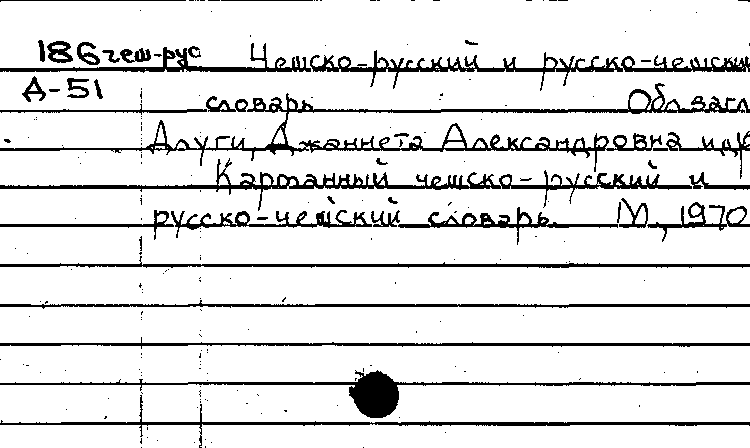 186 чеш-рус Чешско-русский и русско-чешский
Д-51 словарь Обл. загл
Длуги, Джаннета Александровна и др
Карманный чешско-русский и
русско-чешский словарь. М., 1970